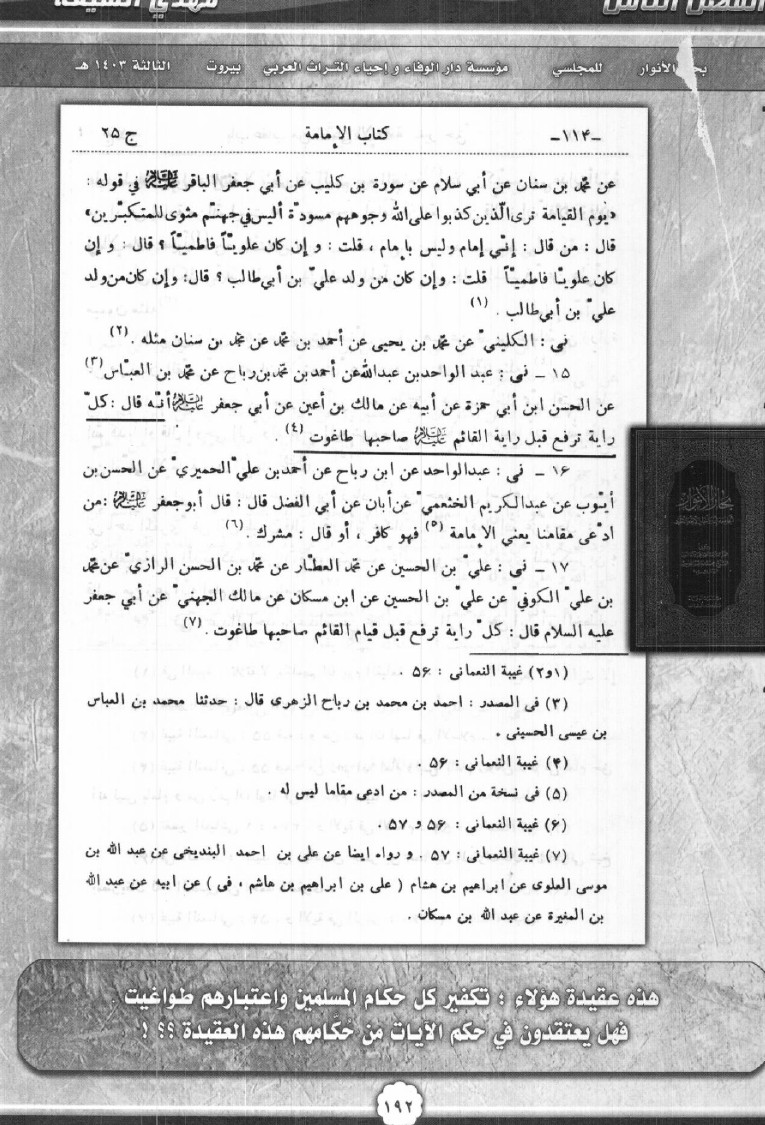 الفصل الثامن
مهدي الشيعة
بحار الأنوار للمجلسي مؤسسة دار الوفاء و إحياء التراث العربي بيروت الثالثة ١٤٠٣ هـ
ـ١١۴ـ كتاب الإمامة ج ٢۵
عن محمّد بن سنان عن أبي سلام عن سورة بن كليب عن أبي جعفر الباقر عليه السلام في قوله :
«يوم القيامة ترى الّذين كذبوا على الله وجوههم مسودّة أليس في جهنّم مثوى للمتكبّرين»
قال : من قال : إنّي إمام وليس بإمام ، قلت : و إن كان علويّاً فاطميّاً ؟ قال : و إن
كان علويّا فاطميّاً قلت : وإن كان من ولد عليّ بن أبي طالب ؟ قال : وإن كان من ولد
عليّ بن أبي طالب . (١)
نى : الكلينيّ عن محمّد بن يحيى عن أحمد بن محمّد عن محمّد بن سنان مثله . (٢)
١۵ ـ نى : عبد الواحد بن عبدالله عن أحمد بن محمّد بن رباح عن محمّد بن العبّاس (٣)
عن الحسن ابن أبي حمزة عن أبيه عن مالك بن أعين عن أبي جعفر عليه السلام أنّه قال : كلّ
راية ترفع قبل راية القائم عليه السلام صاحبها طاغوت (۴) .
١۶ ـ نى : عبدالواحد عن ابن رباح عن أحمد بن عليّ الحميريّ عن الحسن بن
أيّوب عن عبدالكريم الخثعميّ عن أبان عن أبي الفضل قال : قال أبوجعفر عليه السلام : من
ادّعى مقامنا يعني الإمامة (۵) فهو كافر ، أو قال : مشرك . (۶)
١٧ ـ نى : عليّ بن الحسين عن محمّد العطّار عن محمّد بن الحسن الرازيّ عن محمّد
بن عليّ الكوفيّ عن عليّ بن الحسين عن ابن مسكان عن مالك الجهنيّ عن أبي جعفر
عليه السلام قال : كلّ راية ترفع قبل قيام القائم صاحبها طاغوت . (٧)
(١و٢) غيبة النعمانى : ۵۶ .
(٣) فى المصدر : احمد بن محمد بن رباح الزهرى قال : حدثنا محمد بن العباس
بن عيسى الحسينى .
(۴) غيبة النعمانى : ۵۶ .
(۵) فى نسخة من المصدر : من ادعى مقاما ليس له .
(۶) غيبة النعمانى : ۵۶ و ۵٧ .
(٧) غيبة النعمانى : ۵٧ . و رواه ايضا عن على بن احمد البنديخى عن عبد الله بن
موسى العلوى عن ابراهيم بن هشام ( على بن ابراهيم بن هاشم ، فى ) عن ابيه عن عبد الله
بن المغيرة عن عبد الله بن مسكان .
هذه عقيدة هؤلاء : تكفير كل حكام المسلمين واعتبارهم طواغيت
فهل يعتقدون في حكم الآيات من حكامهم هذه العقيدة ؟؟ !
١٩٢